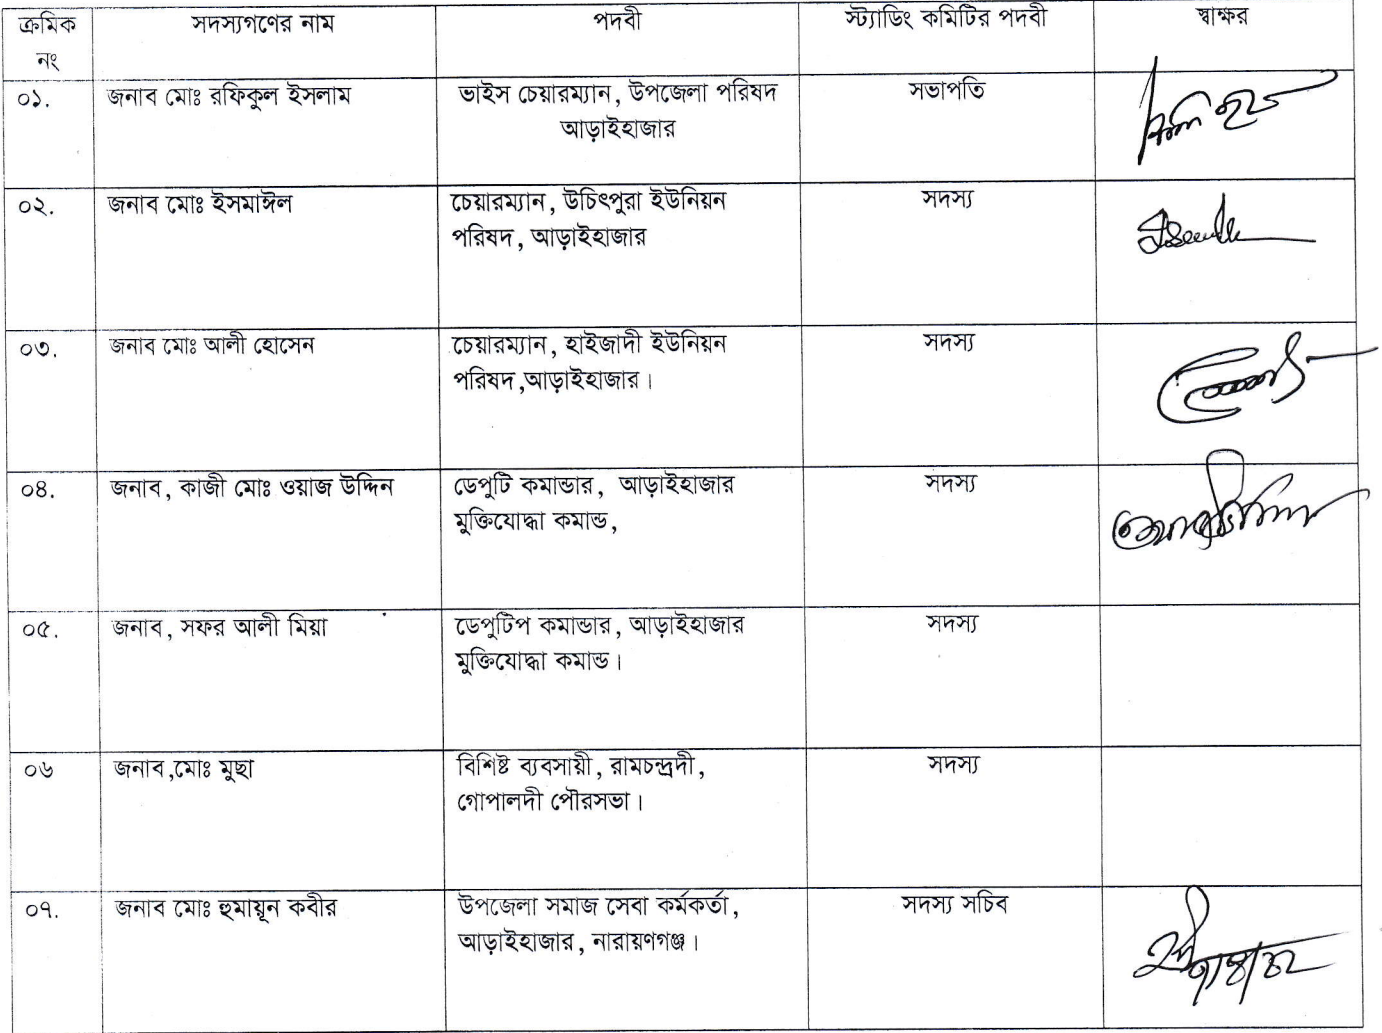 ক্রমিক নং সদস্যগণের নাম পদবী স্ট্যাডিং কমিটির পদবী স্বাক্ষর
০১. জনাব মোঃ রফিকুল ইসলাম ভাইস চেয়ারম্যান, উপজেলা পরিষদ সভাপতি
আড়াইহাজার
০২. জনাব মোঃ ইসমাঈল চেয়ারম্যান, উচিৎপুরা ইউনিয়ন সদস্য
পরিষদ, আড়াইহাজার
০৩. জনাব মোঃ আলী হোসেন চেয়ারম্যান, হাইজাদী ইউনিয়ন সদস্য
পরিষদ,আড়াইহাজার।
০৪. জনাব, কাজী মোঃ ওয়াজ উদ্দিন ডেপুটি কমান্ডার, আড়াইহাজার সদস্য
মুক্তিযোদ্ধা কমান্ড,
০৫. জনাব, সফর আলী মিয়া ডেপুটিপ কমান্ডার, আড়াইহাজার সদস্য
মুক্তিযোদ্ধা কমান্ড।
০৬ জনাব,মোঃ মুছা বিশিষ্ট ব্যবসায়ী, রামচন্দ্রদী, সদস্য
গোপালদী পৌরসভা।
০৭. জনাব মোঃ হুমায়ূন কবীর উপজেলা সমাজ সেবা কর্মকর্তা, সদস্য সচিব
আড়াইহাজার, নারায়ণগঞ্জ।